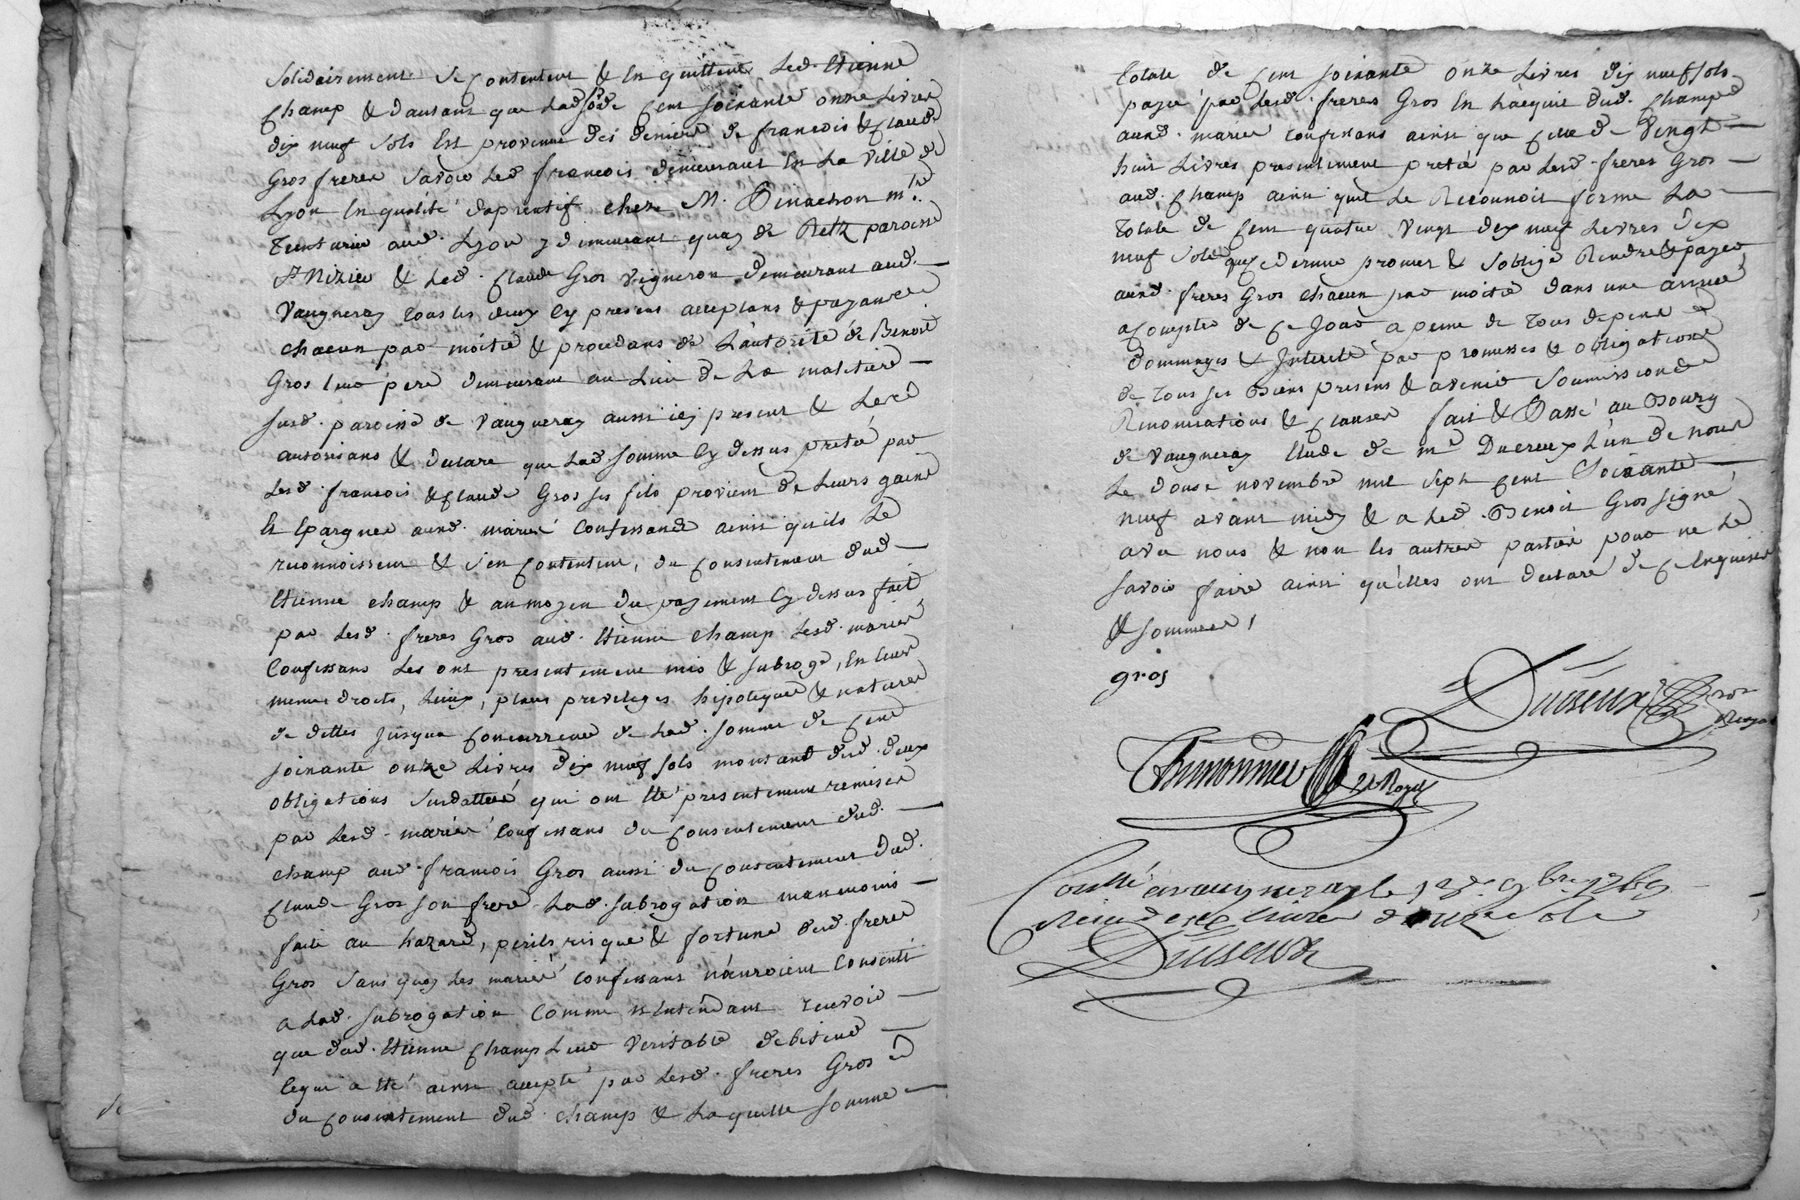 Solidairement se contentent & en quittent led. Etienne
Champ & dautant que lad. so.e de Cent soixante onze Livres
dix neuf sols Est provenue des deniers de francois & Claude
Gros freres savoir led francois demeurant En La ville de
Lyon En qualité d'aprentif chez M. Pinachon m.tre
Teinturier aud. Lyon y demeurant quay de Retz paroisse
St Nizier & led. Claude Gros vigneron demeurant aud.
Vaugneray tous les deux Cy presens acceptans & payans
chacun par moitié & procedans de L'autorité de Benoit
Gros leur pere demeurant au Lieu de La maletiere
susd. paroisse de Vaugneray aussi icy present & Les
autorisans & declare que Lad. somme Cy dessus pretée par
Lesd. francois & Claude Gros ses fils provient de Leurs gains
Et Epargnes auxd. mariés Confessans ainsi quils Le
reconnoissent & s'en Contentent, du Consentement dud.
Etienne champ & au moyen du payement Cy dessus fait
par Lesd. freres Gros aud. Etienne Champ Lesd. mariés
Confessans Les ont presentement mis & subrogé, En leur
memes droits, Lieux, places previleges hipoteques & natures
de dettes jusqua Concurrence de Lad. somme de Cent
soixante onze Livres dix neuf sols montant desd. deux
obligations susdattées qui ont Eté presentement remises
par Lesd. mariés Confessans du Consentement dud.
champ aud. francois Gros aussi du Consentement dud.
Claude Gros son frere Lad. subrogation neanmoins
faite au hazard, perils risque & fortune desd. freres
Gros sans quoy Les mariés Confessans n'auroient Consenti
a Lad. subrogation Comme n'Entendant recevoir
que dud. Etienne Champ Leur veritable debiteur
Ce qui a Eté ainsi accepté par Lesd. freres Gros &
du Consentement dud. champ & Laquelle somme
Totale de Cent soixante onze Livres dix neuf sols
payée par Lesd. freres Gros En L'acquit dud. Champ
auxd. mariés Confessans ainsi que Celle de vingt
huit Livres presentement pretée par Lesd. freres Gros
aud. Champ ainsi quil Le Reconnoit forme La
Totale de Cent quatre vingt dix neuf Livres dix
neuf sols que Ce dernier promet & s'oblige Rendre & payer
auxd. freres Gros chacun par moitié dans une année
a Compter de Ce Jour a peine de Tous depens
dommages & Interets par promesses & obligations
de Tous ses Biens presens & avenir soumissions
Renonciations & Clauses fait & Passé au Bourg
de Vaugneray Etude de me Ducreux L'un de nous
Le douze novembre mil sept Cent soixante
neuf avant midy & a Led. Benoit Gros signé
avec nous & non les autres parties pour ne Le
savoir faire ainsi qu'elles ont declaré de Ce Enquises
& sommées,
gros
Ducreux
n.re Royal
Controllé a vaugneray le 12e 9bre 1769
Reçu deux Livres douze sols
Ducreux